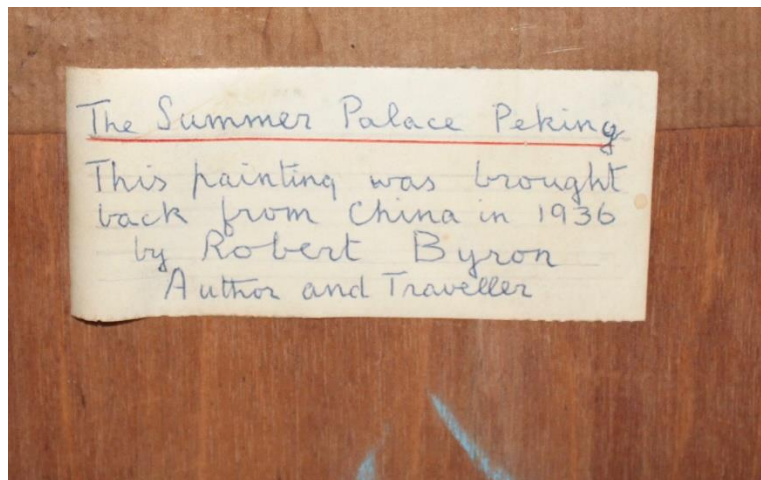 The Summer Palace Peking
This painting was brought
back from China in 1936
by Robert Byron
Author and Traveller